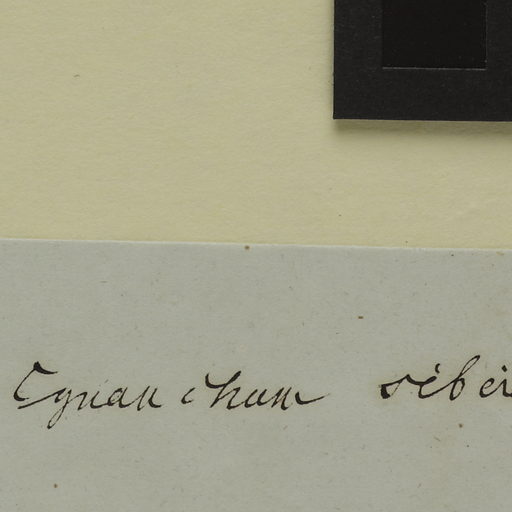 Cynanchum sibei